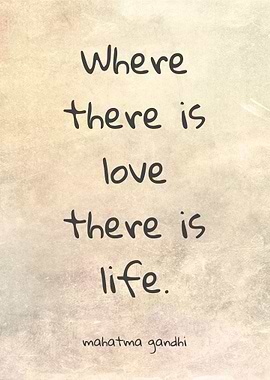 Where
there is
love
there is
life.
mahatma gandhi